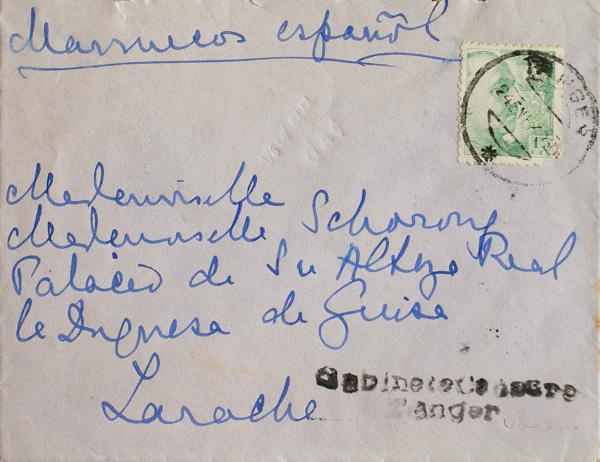 Marruecos español
TANGER
24 EN
Mademoiselle
Mademoiselle Schorong
Palacio de Su Alteza Real
la Duquesa de Guisa
Larache
Gabinete Censura
Tánger